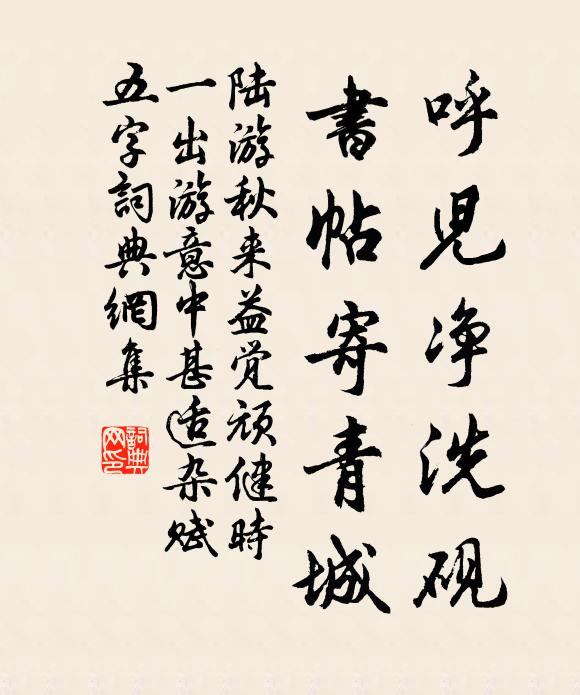 呼児净洗砚
書帖寄青城
陆游秋来益觉顽健時
一出游意中甚适杂赋
五字詞典網集
詞典
网印